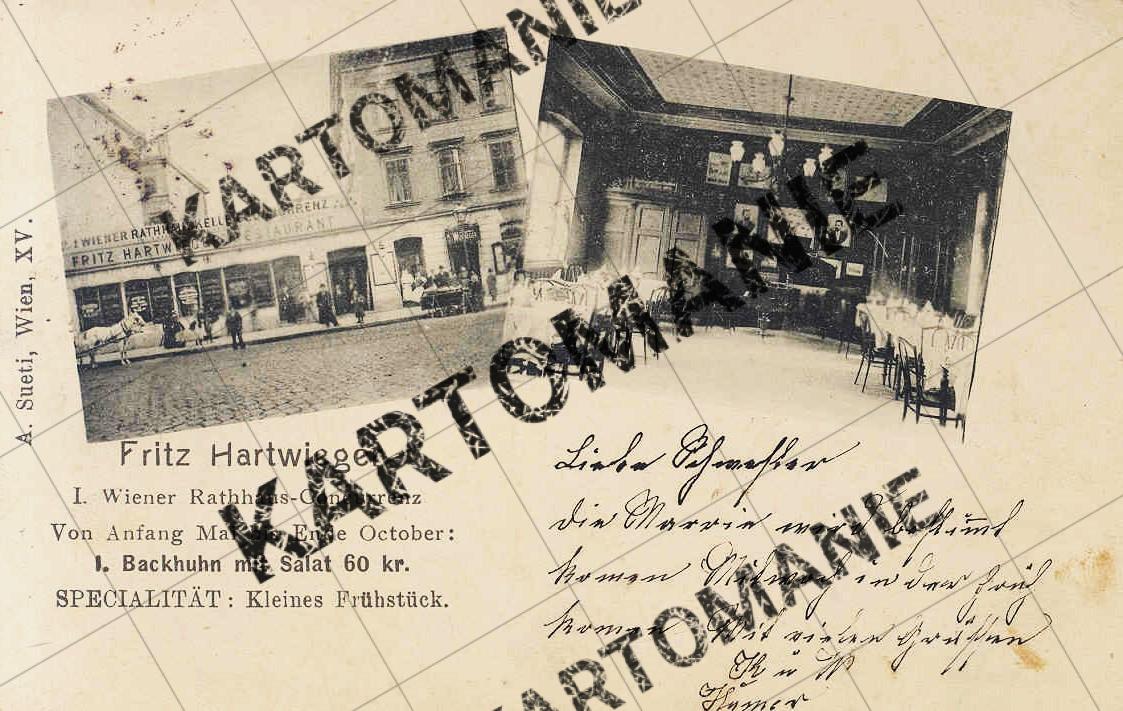 KARTOMANIE
I. WIENER RATHHAUSKELLER CONCURRENZ
FRITZ HARTWIEGER RESTAURANT
KARTOMANIE
A. Sueti, Wien, XV.
Fritz Hartwieger
I. Wiener Rathhaus-Concurrenz
Von Anfang Mai bis Ende October:
1. Backhuhn mit Salat 60 kr.
SPECIALITÄT: Kleines Frühstück.
Liebe Schwester
die Marrie wird bestimt
komen Mitwoch in der Früh
komen Mit vielen Grüßen
K u W
KARTOMANIE